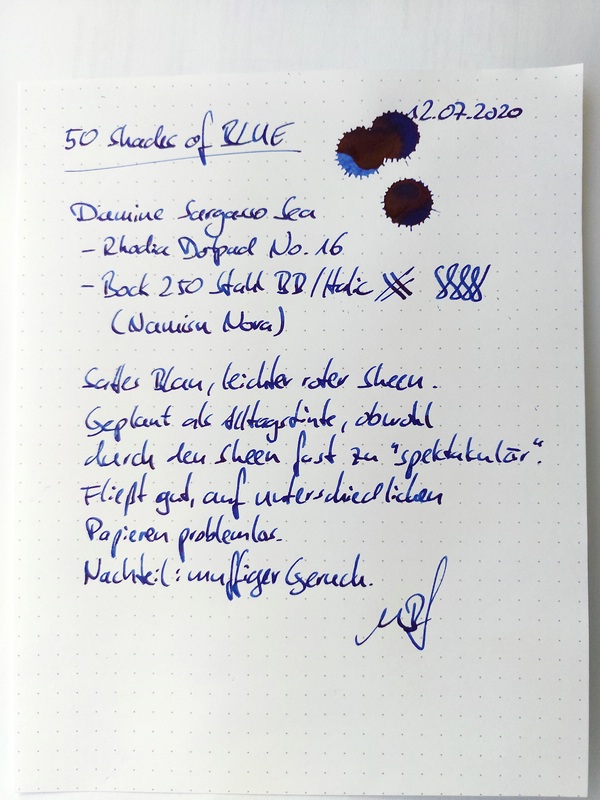 12.07.2020
50 Shades of BLUE
Diamine Sargasso Sea
- Rhodia Dotpad No. 16
- Bock 250 Stahl BB/Italic
(Namisu Nova)
Sattes Blau, leichter roter Sheen.
Geplant als Alltagstinte, obwohl
durch den Sheen fast zu "spektakulär".
Fließt gut, auf unterschiedlichen
Papieren problemlos.
Nachteil: muffiger Geruch.